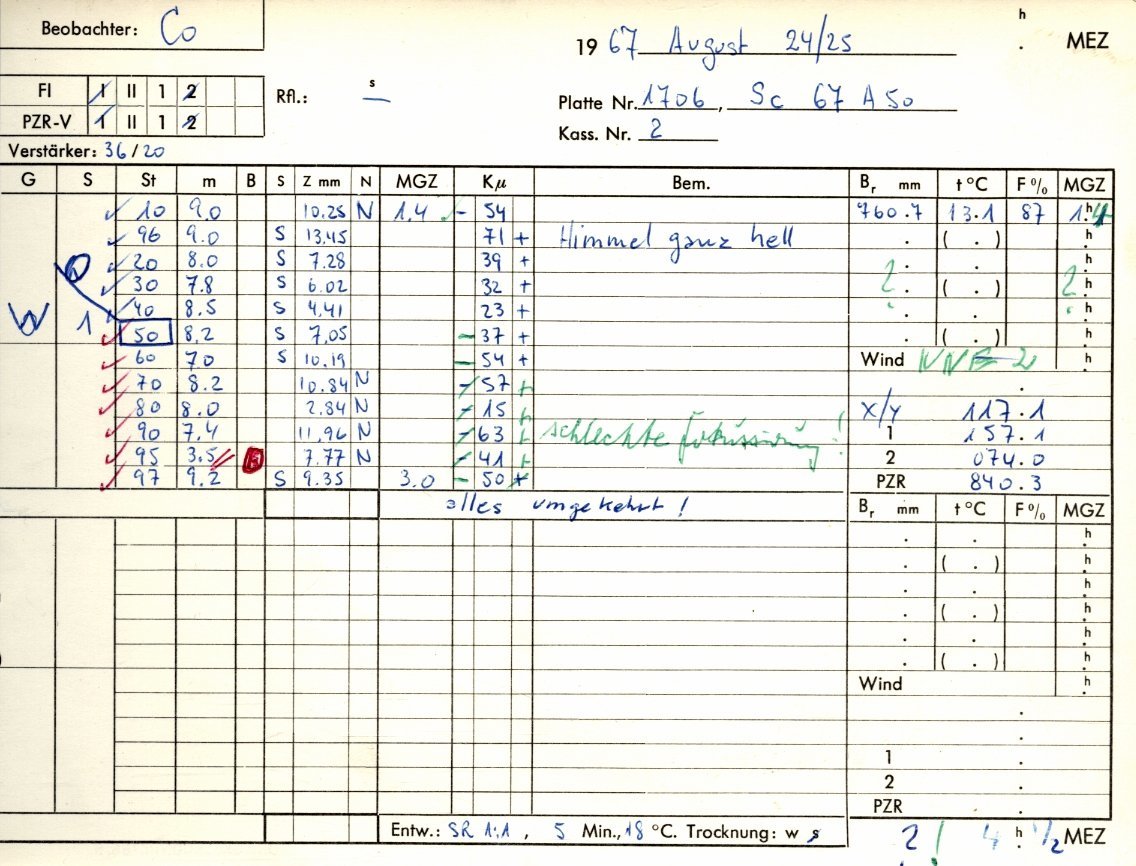 Beobachter: Co
h
19 67 August 24/25 . MEZ
FI I II 1 2
PZR-V 1 II 1 2
Rfl.: — s
Platte Nr. 1706, Sc 67 A 50
Kass. Nr. 2
Verstärker: 36/20
G S St m B S Z mm N MGZ Kµ Bem. Br mm t °C F % MGZ
10 9.0 10.25 N 1.4 - 54 760.7 13.1 87 1.h4
96 9.0 S 13.45 71 + Himmel ganz hell . ( . ) h
20 8.0 S 7.28 39 + ? . . h
30 7.8 S 6.02 32 + . ( . ) ? h
40 8.5 S 4.41 23 + . . h
1 50 8.2 S 7.05 - 37 + . ( . ) h
60 7.0 S 10.19 - 54 + Wind NNE 2 h
70 8.2 10.84 N - 57 + .
80 8.0 2.84 N - 15 + x/y 117.1
90 7.4 11.96 N - 63 + schlechte Fokussierung! 1 157.1
95 3.5 7.77 N - 41 + 2 074.0
97 9.2 S 9.35 3.0 - 50 + PZR 840.3
alles umgekehrt! Br mm t °C F % MGZ
. . h
. ( . ) h
. . h
. ( . ) h
. . h
. ( . ) h
Wind h
.
.
1 .
2 .
PZR .
Entw.: SR 1:1, 5 Min., 18 °C. Trocknung: w s ? ! 4 h 1/2 MEZ